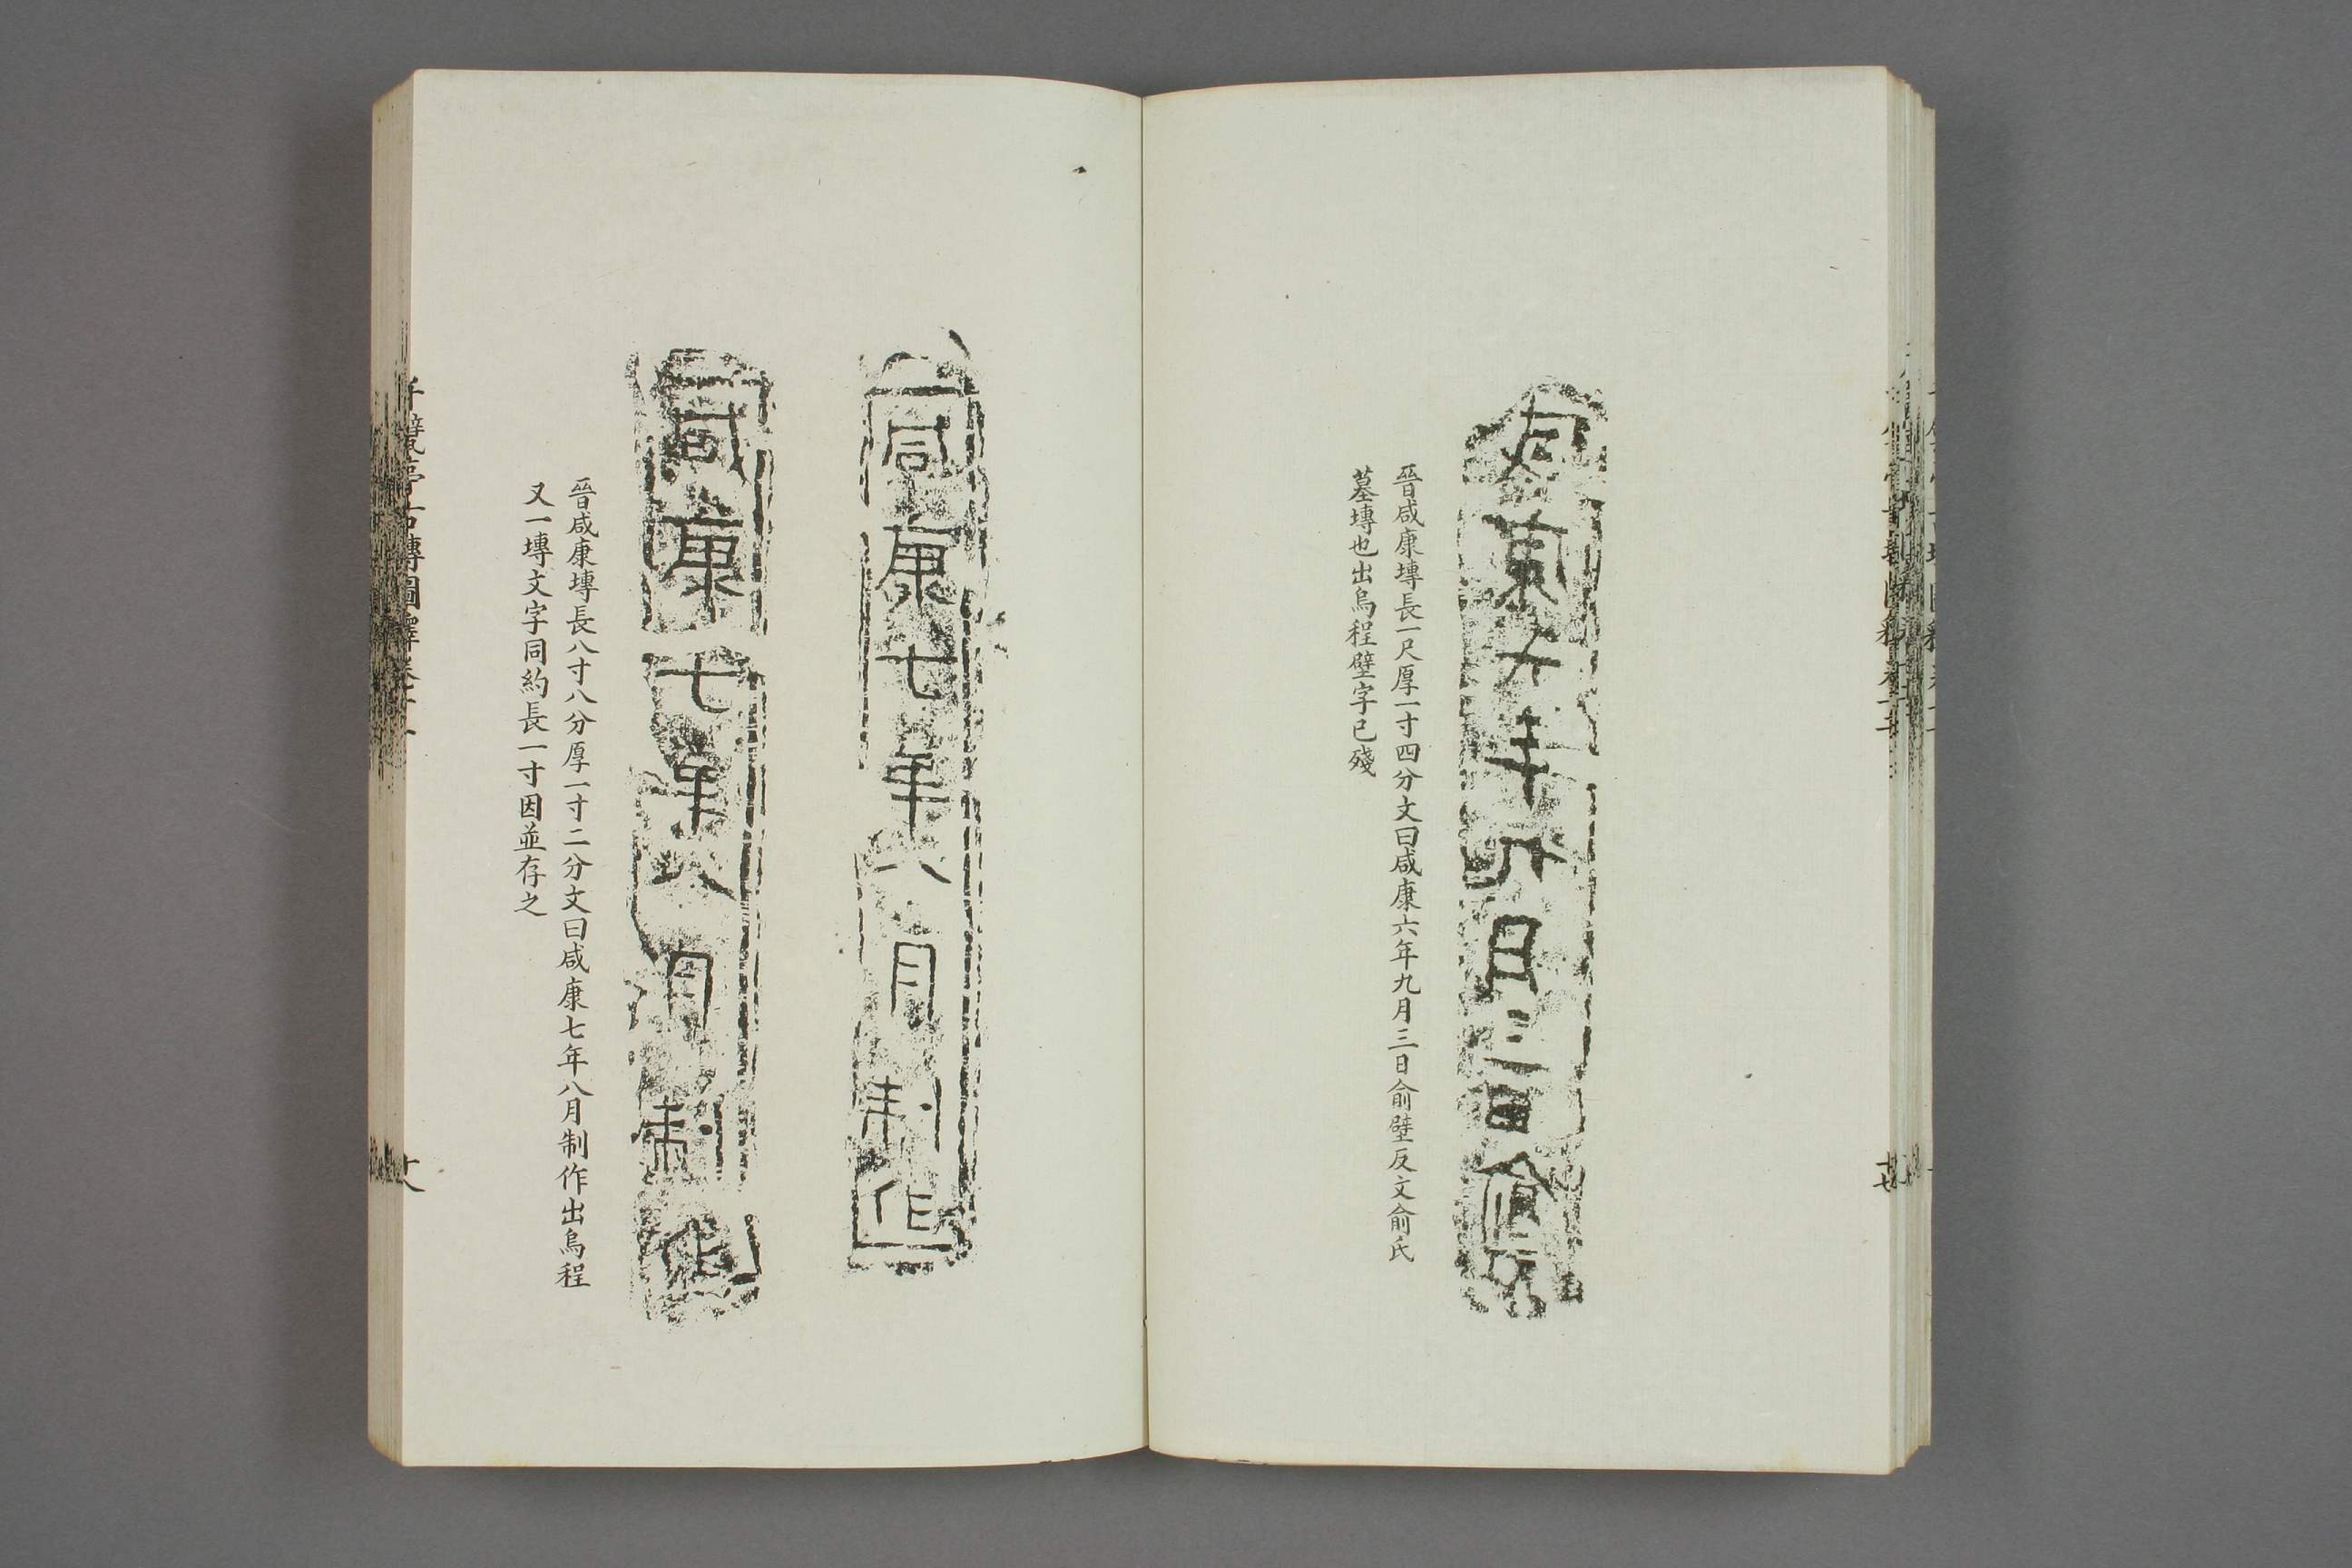 咸康六年九月三日俞
晉咸康塼長一尺厚一寸四分文曰咸康六年九月三日俞壁反文俞氏
墓塼也出烏程壁字已殘
咸康七年八月制作
咸康七年八月制作
晉咸康塼長八寸八分厚一寸二分文曰咸康七年八月制作出烏程
又一塼文字同約長一寸因並存之
千甓亭古塼圖釋卷十
十八
十七